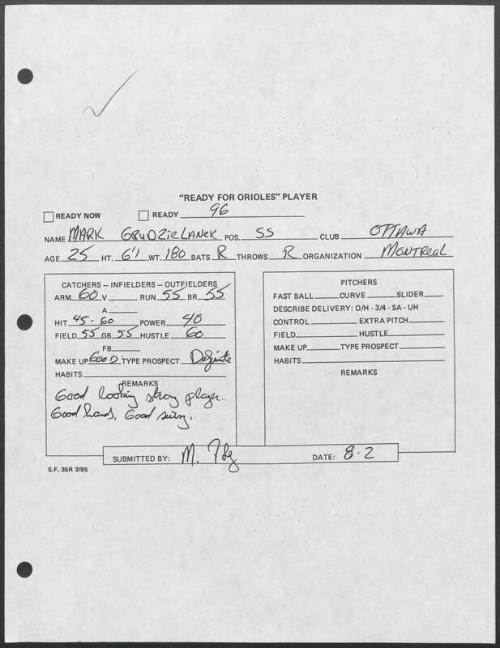 "READY FOR ORIOLES" PLAYER
READY NOW READY 96
NAME MARK GRUDZIELANEK POS. SS CLUB OTTAWA
AGE 25 HT. 6'1 WT. 180 BATS R THROWS R ORGANIZATION MONTREAL
CATCHERS – INFIELDERS – OUTFIELDERS
ARM 60 V RUN. 55 BR 55
A
HIT 45-60 POWER 40
FIELD 55 GB 55 HUSTLE 60
FB
MAKE UP GOOD TYPE PROSPECT Definite
HABITS
REMARKS
Good looking strong player.
Good hands, Good swing.
PITCHERS
FAST BALL CURVE SLIDER
DESCRIBE DELIVERY: O/H - 3/4 - SA - UH
CONTROL EXTRA PITCH
FIELD HUSTLE
MAKE UP TYPE PROSPECT
HABITS
REMARKS
SUBMITTED BY: M. DATE: 8-2
S.F. 35R 3/85